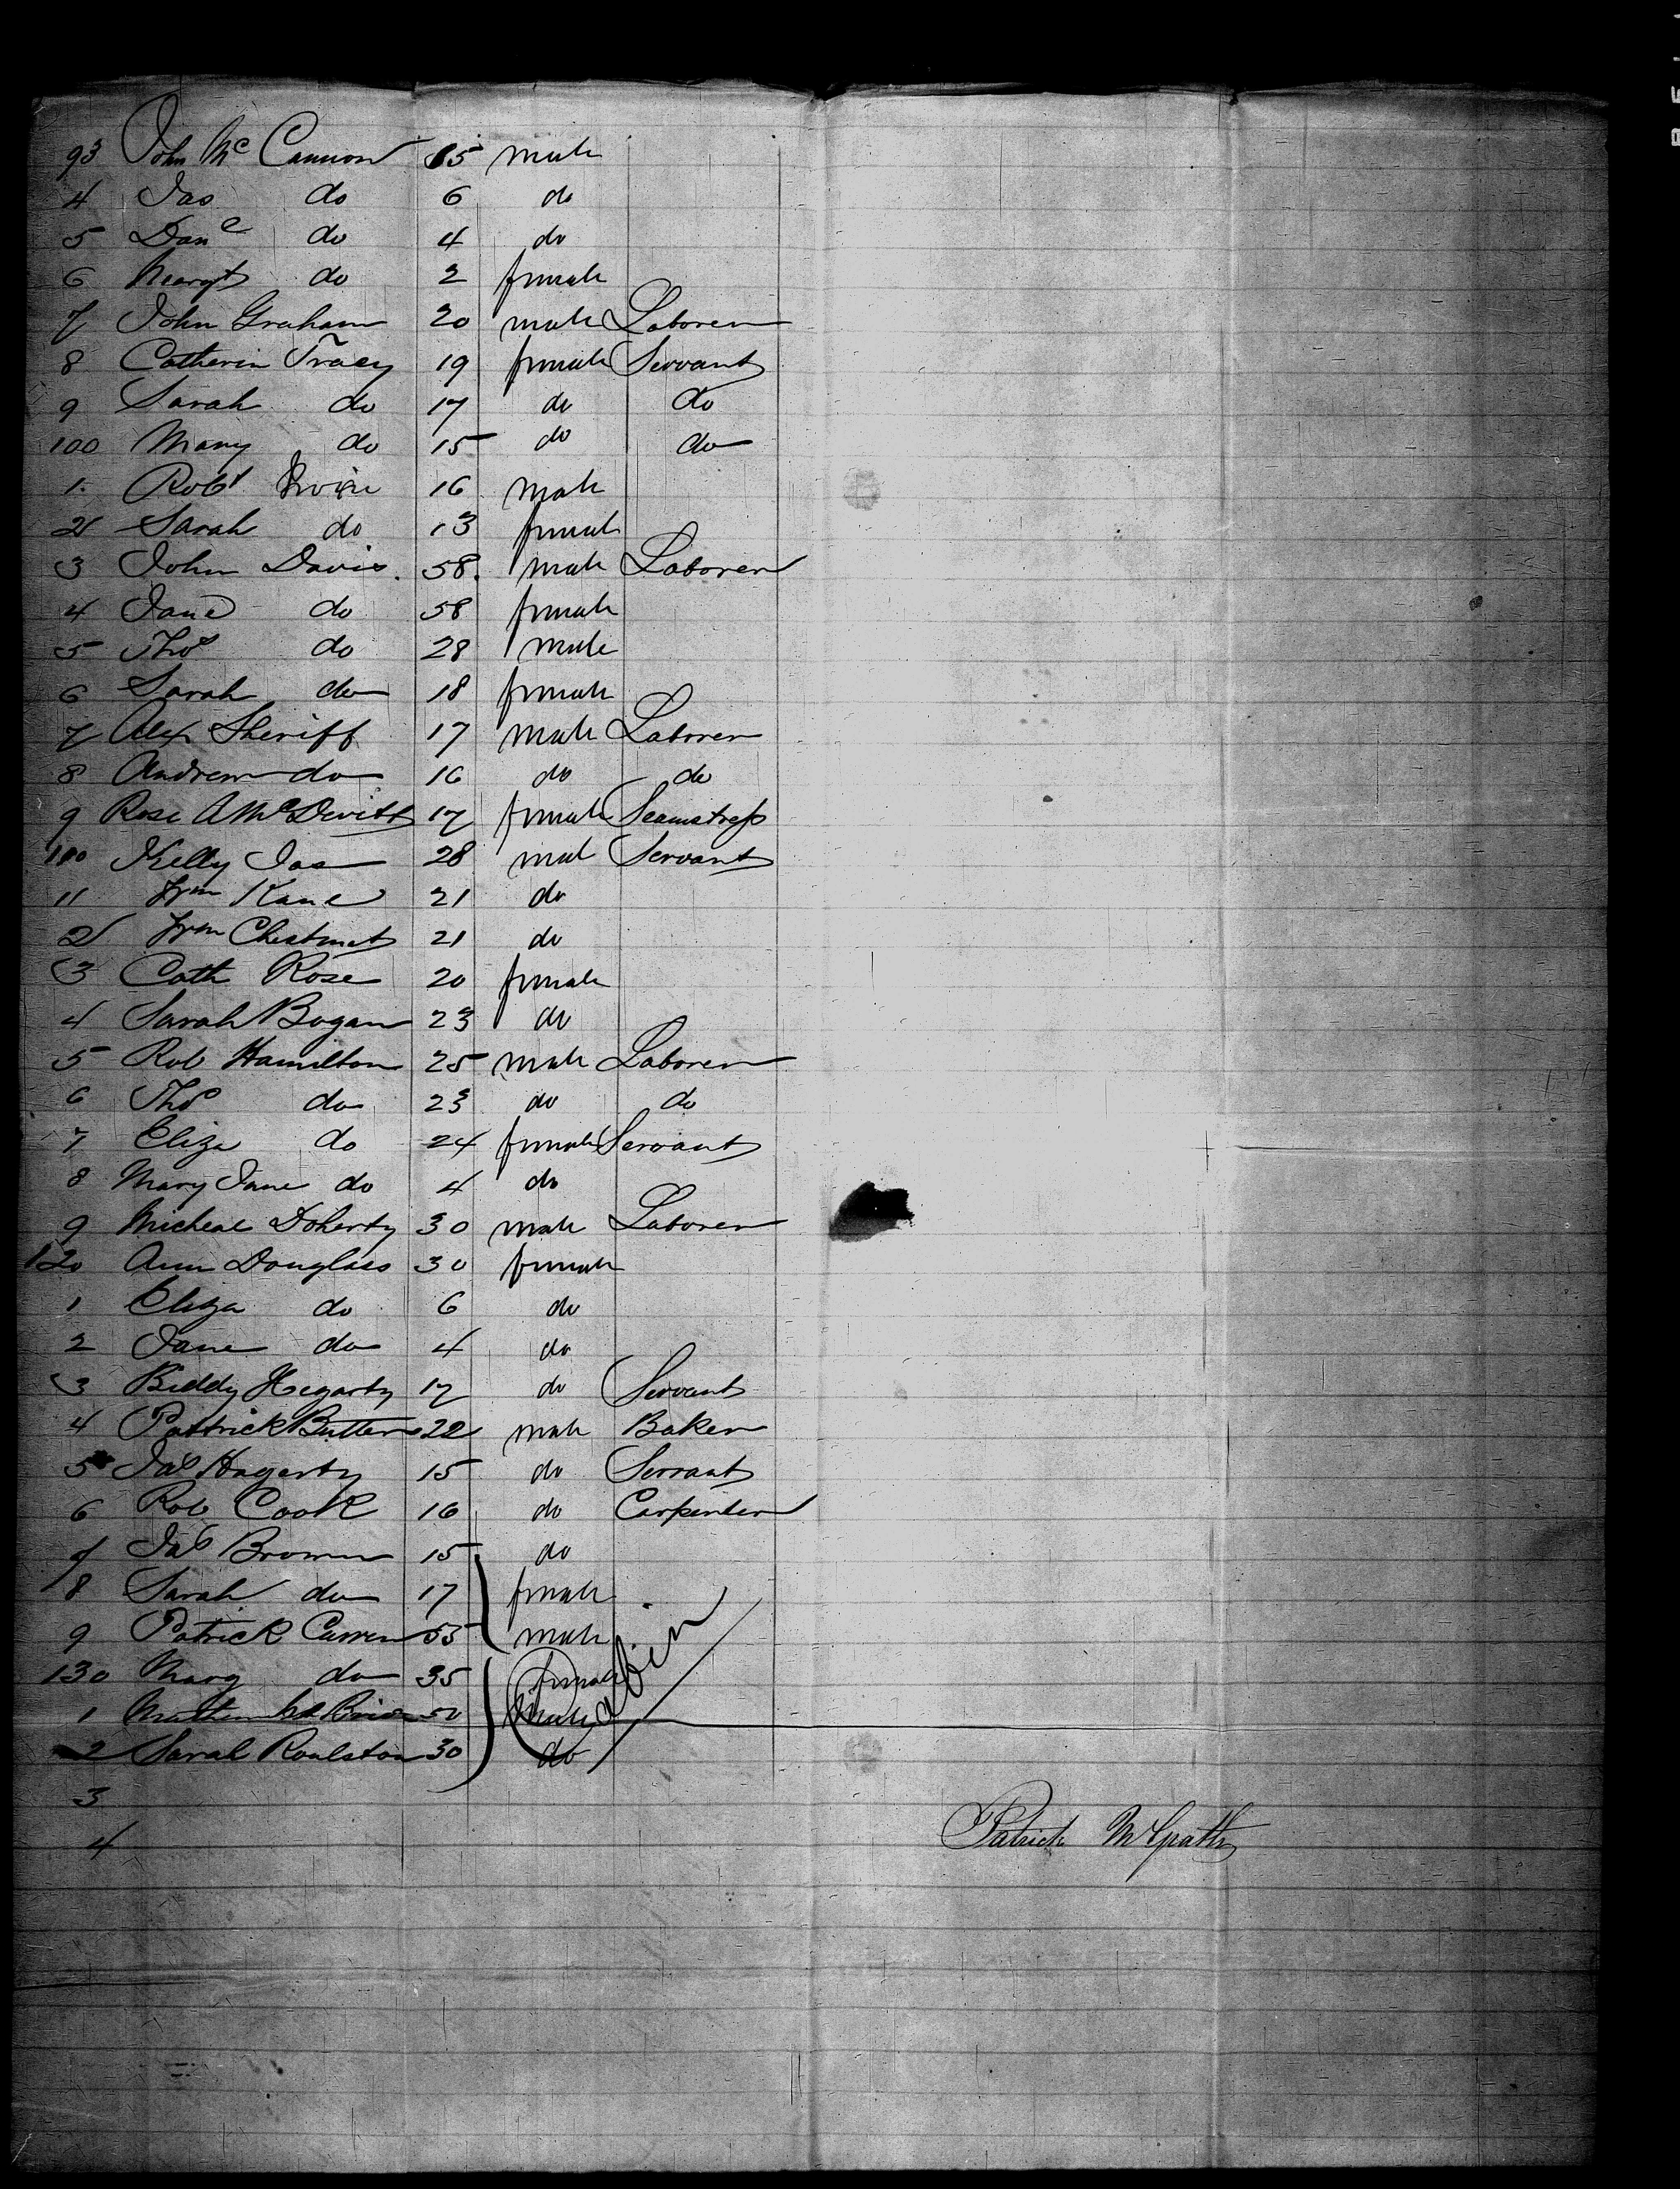 93 John Mc Cannon 15 male
4 Jas do 6 do
5 Danl do 4 do
6 Margt do 2 female
7 John Graham 20 male Laborer
8 Catherin Tracy 19 female Servant
9 Sarah do 17 do do
100 Mary do 15 do do
1. Robt Irvine 16 male
2 Sarah do 13 female
3 John Davis. 58. male Laborer
4 Jane do 58 female
5 Thos do 28 male
6 Sarah do 18 female
7 Alex Sheriff 17 male Laborer
8 Andrew do 16 do do
9 Rose A McDevitt 17 female Seamstress
110 Kelly Jas 28 mal Servant
11 Wm Kane 21 do
2 Wm Chestnut 21 do
3 Cath Rose 20 female
4 Sarah Bogan 23 do
5 Rob Hamilton 25 male Laborer
6 Thos do 23 do do
7 Eliza do 24 female Servant
8 Mary Jane do 4 do
9 Micheal Doherty 30 male Laborer
120 Ann Douglass 30 female
1 Eliza do 6 do
2 Jane do 4 do
3 Biddy Hegarty 17 do Servant
4 Pattrick Butter 22 male Baker
5 Jas Hagerty 15 do Servant
6 Rob Cook 16 do Carpenter
7 Jas Brown 15 do
8 Sarah do 17 female
9 Patrick Curren 55 male
130 Marg do 35 female Cabin
1 50 male
2 Sarah Roulston 30 do
3
4
Patrick McGrath